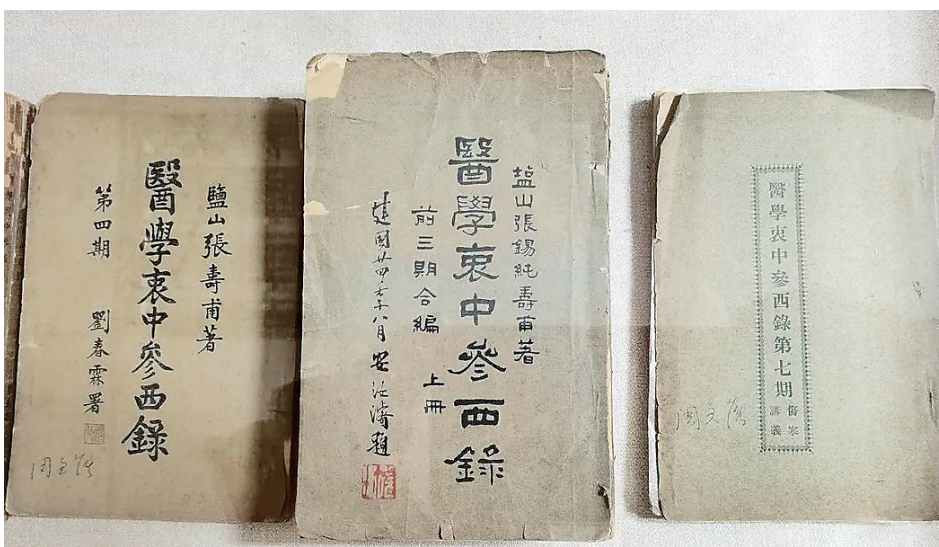 鹽山張壽甫著
醫學衷中參西錄
第四期
劉春霖署
塩山張錫純壽甫著
醫學衷中參西錄
前三期合編
上冊
建國廿四年八月
醫學衷中參西錄第七期
傷寒
講義